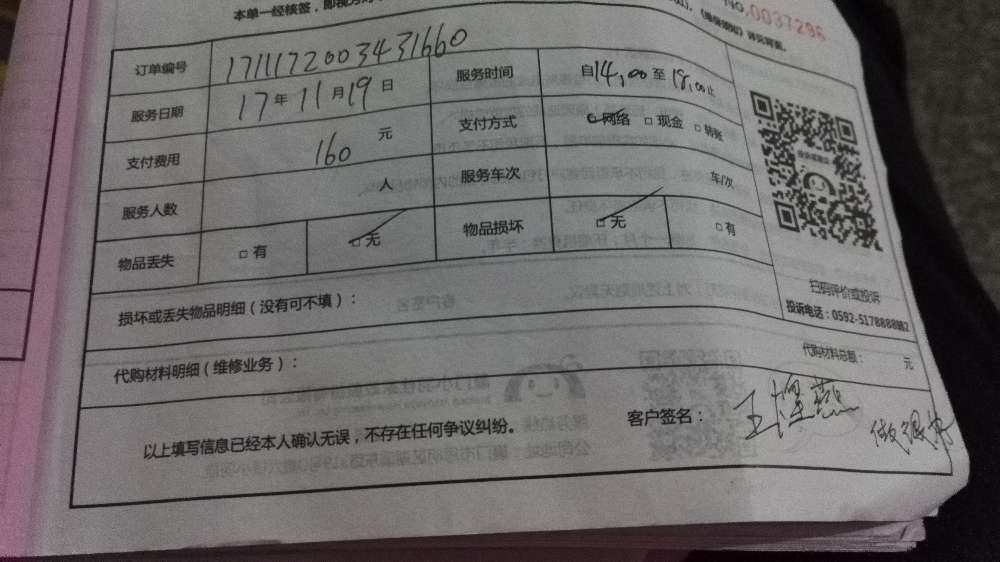 本单一经核签，即视为对
NO.0037296
订单编号 1711172003431660
服务日期 17年11月19日 服务时间 自14:00至18:00止
支付费用 160元 支付方式 □网络 □现金 □转账
服务人数 人 服务车次 车/次
物品丢失 □有 □无 物品损坏 □无 □有
扫码评价或投诉
投诉电话：0592-5178888转2
损坏或丢失物品明细（没有可不填）：
代购材料明细（维修业务）： 代购材料总额： 元
以上填写信息已经本人确认无误，不存在任何争议纠纷。 客户签名：